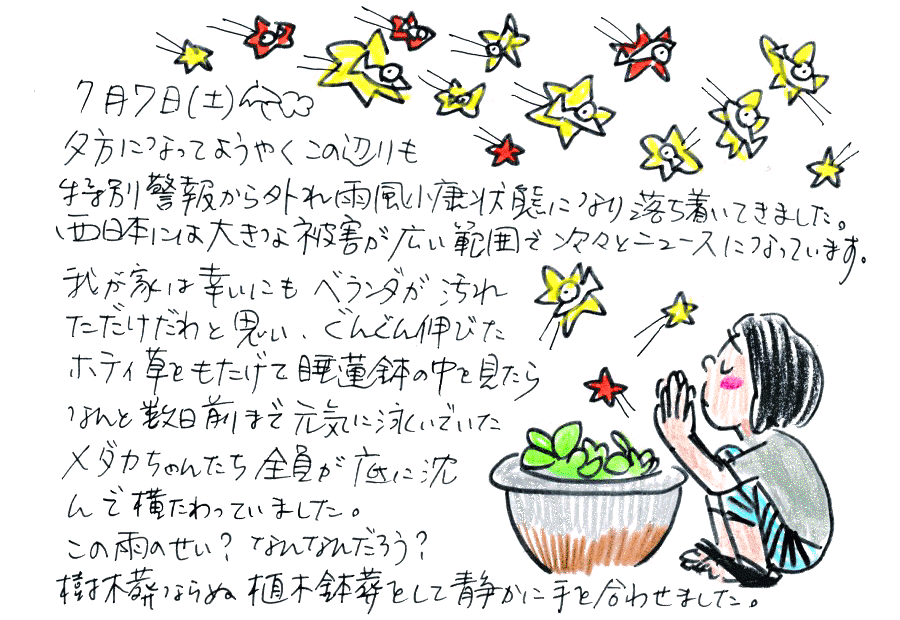 7月7日(土)
夕方になってようやくこの辺りも
特別警報から外れ雨風小康状態になり落ち着いてきました。
西日本には大きな被害が広い範囲で次々とニュースになっています。
我が家は幸いにもベランダが汚れ
ただけだわと思い、ぐんぐん伸びた
ホティ草をもたげて睡蓮鉢の中を見たら
なんと数日前まで元気に泳いでいた
メダカちゃんたち全員が底に沈
んで横たわっていました。
この雨のせい?なんなんだろう?
樹木葬ならぬ植木鉢葬として静かに手を合わせました。